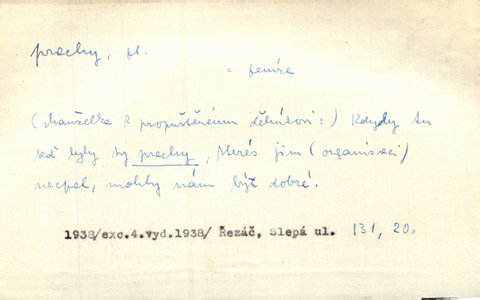 prachy, pl.
= peníze
(manželka k propuštěnému dělníkovi:) Kdyby tu
teď byly ty prachy, kterés jim (organisaci)
necpal, mohly nám být dobré.
1938/exc.4.vyd.1938/ Řezáč, Slepá ul. 131, 20.